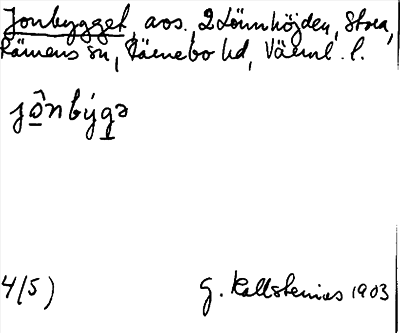 Jonbygget, avs., 2 Lönnhöjden, Stora,
Rämens sn, Färnebo hd, Värml. l.
jô̲nbýg̲ə
4/5)
G. Kallstenius 1903